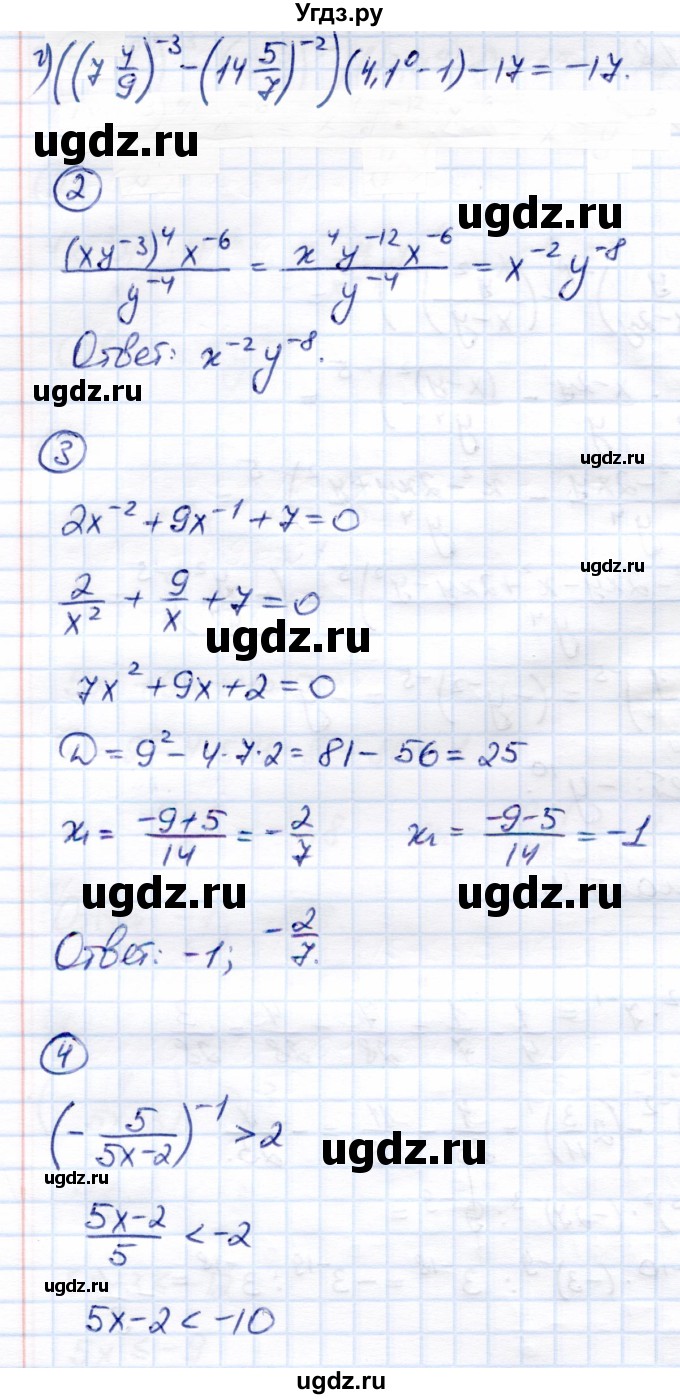 Угдз.ру
г) ((7 4/9)^-3 - (14 5/7)^-2)(4,1^0 - 1) - 17 = -17.
ugdz.ru
2
ugdz.ru
(xy^-3)^4 x^-6 / y^-4 = x^4 y^-12 x^-6 / y^-4 = x^-2 y^-8
Ответ: x^-2 y^-8.
ugdz.ru
3
ugdz.ru
2x^-2 + 9x^-1 + 7 = 0
ugdz.ru
2/x^2 + 9/x + 7 = 0
ugdz.ru
7x^2 + 9x + 2 = 0
D = 9^2 - 4·7·2 = 81 - 56 = 25
x1 = (-9+5)/14 = -2/7 x2 = (-9-5)/14 = -1
ugdz.ru ugdz.ru
Ответ: -1; -2/7.
4
(-5/(5x-2))^-1 > 2
ugdz.ru
ugdz.ru
(5x-2)/5 < -2
ugdz.ru
5x-2 < -10
ugdz.ru